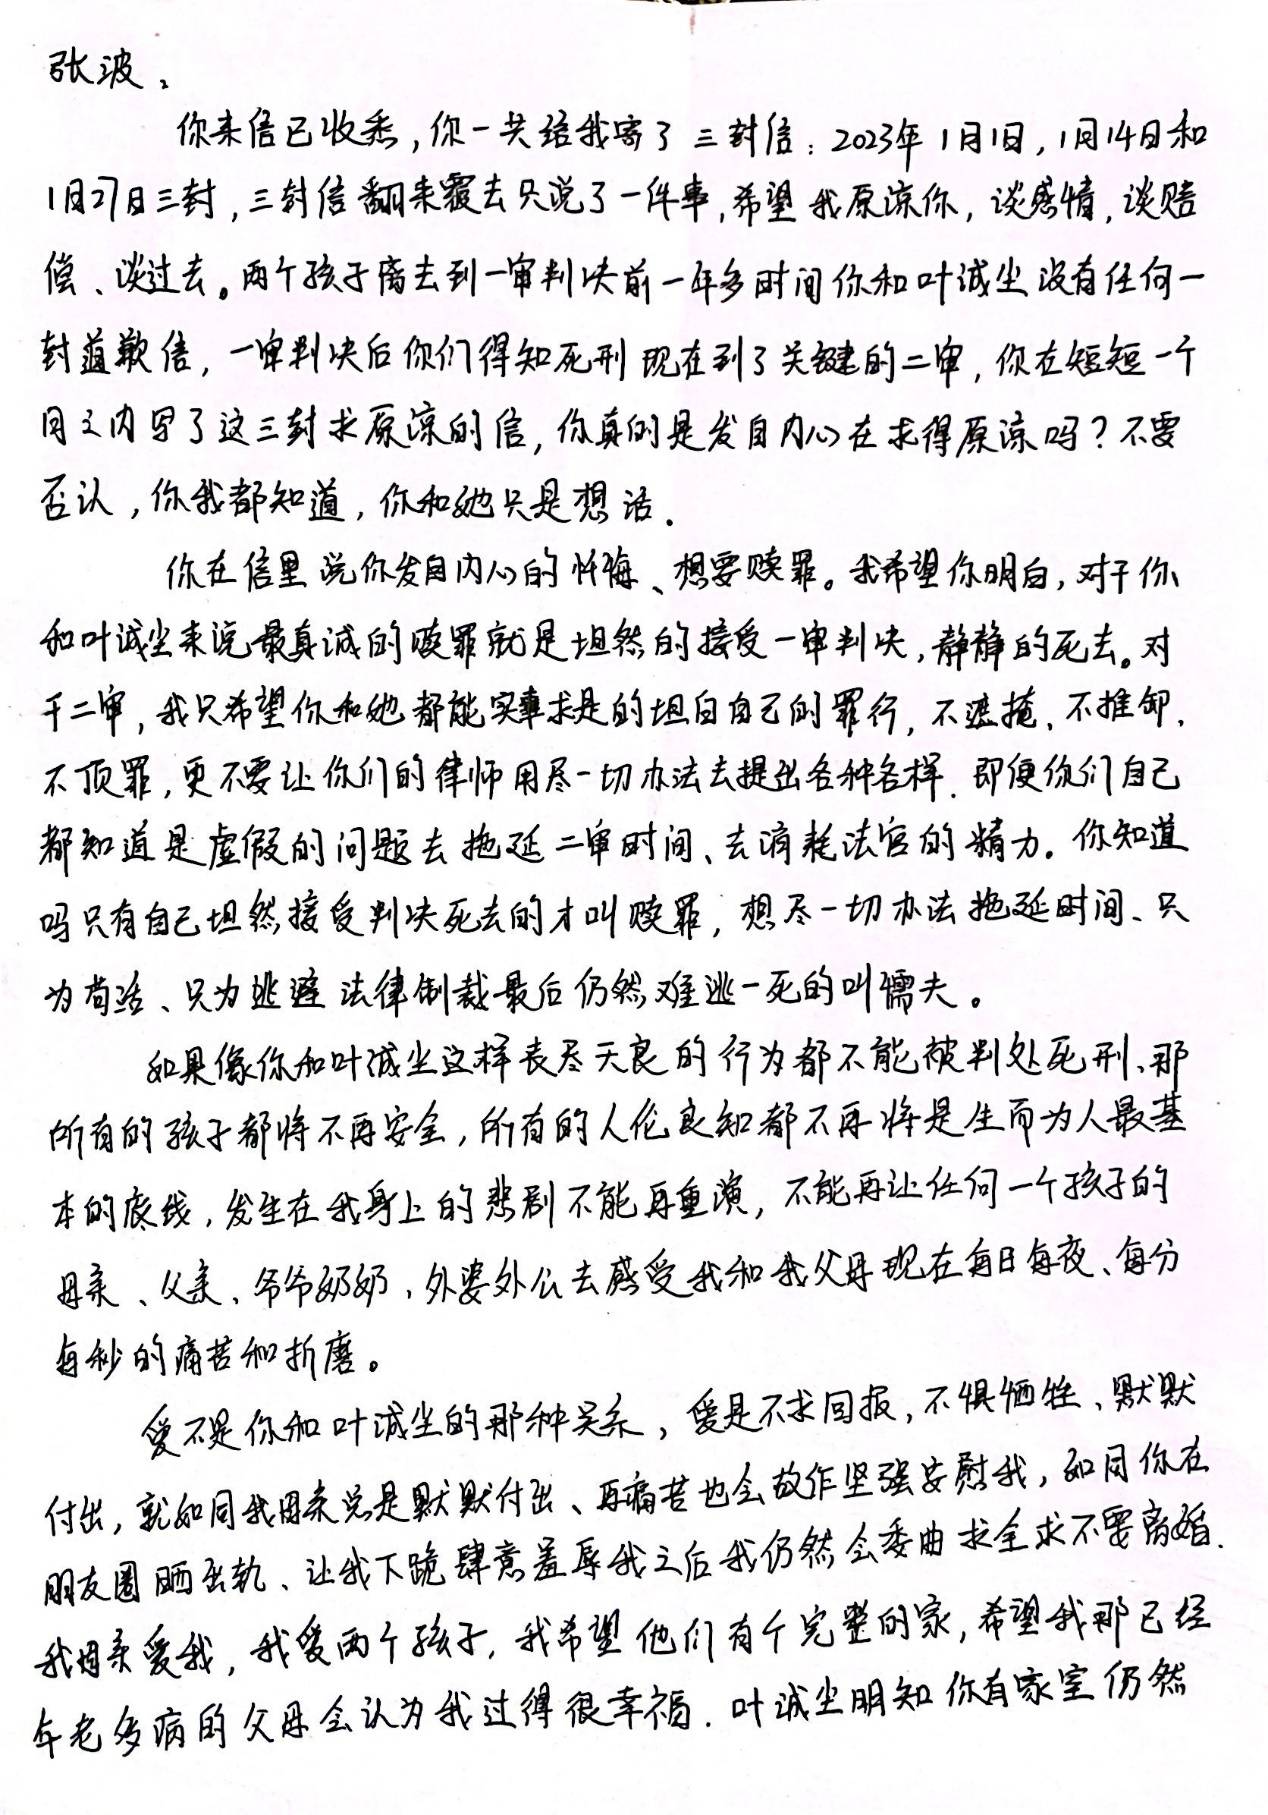 张波：
你来信已收悉，你一共给我寄了三封信：2023年1月1日，1月14日和
1月27日三封，三封信翻来覆去只说了一件事，希望我原谅你，谈感情，谈赔
偿、谈过去。两个孩子离去到一审判决前一年多时间你和叶诚尘没有任何一
封道歉信，一审判决后你们得知死刑现在到了关键的二审，你在短短一个
月之内写了这三封求原谅的信，你真的是发自内心在求得原谅吗？不要
否认，你我都知道，你和她只是想活.
你在信里说你发自内心的忏悔、想要赎罪。我希望你明白，对于你
和叶诚尘来说最真诚的赎罪就是坦然的接受一审判决，静静的死去。对
于二审，我只希望你和她都能实事求是的坦白自己的罪行，不遮掩，不推卸，
不顶罪，更不要让你们的律师用尽一切办法去提出各种各样.即便你们自己
都知道是虚假的问题去拖延二审时间、去消耗法官的精力。你知道
吗只有自己坦然接受判决死去的才叫赎罪，想尽一切办法拖延时间、只
为苟活、只为逃避法律制裁最后仍然难逃一死的叫懦夫。
如果像你和叶诚尘这样丧尽天良的行为都不能被判处死刑、那
所有的孩子都将不再安全，所有的人伦良知都不再将是生而为人最基
本的底线，发生在我身上的悲剧不能再重演，不能再让任何一个孩子的
母亲、父亲、爷爷奶奶，外婆外公去感受我和我父母现在每日每夜、每分
每秒的痛苦和折磨。
爱不是你和叶诚尘的那种关系，爱是不求回报，不惧牺牲、默默
付出，就如同我母亲总是默默付出、再痛苦也会故作坚强安慰我，如同你在
朋友圈晒出轨、让我下跪肆意羞辱我之后我仍然会委曲求全求不要离婚.
我母亲爱我，我爱两个孩子，我希望他们有个完整的家，希望我那已经
年老多病的父母会认为我过得很幸福.叶诚尘明知你有家室仍然